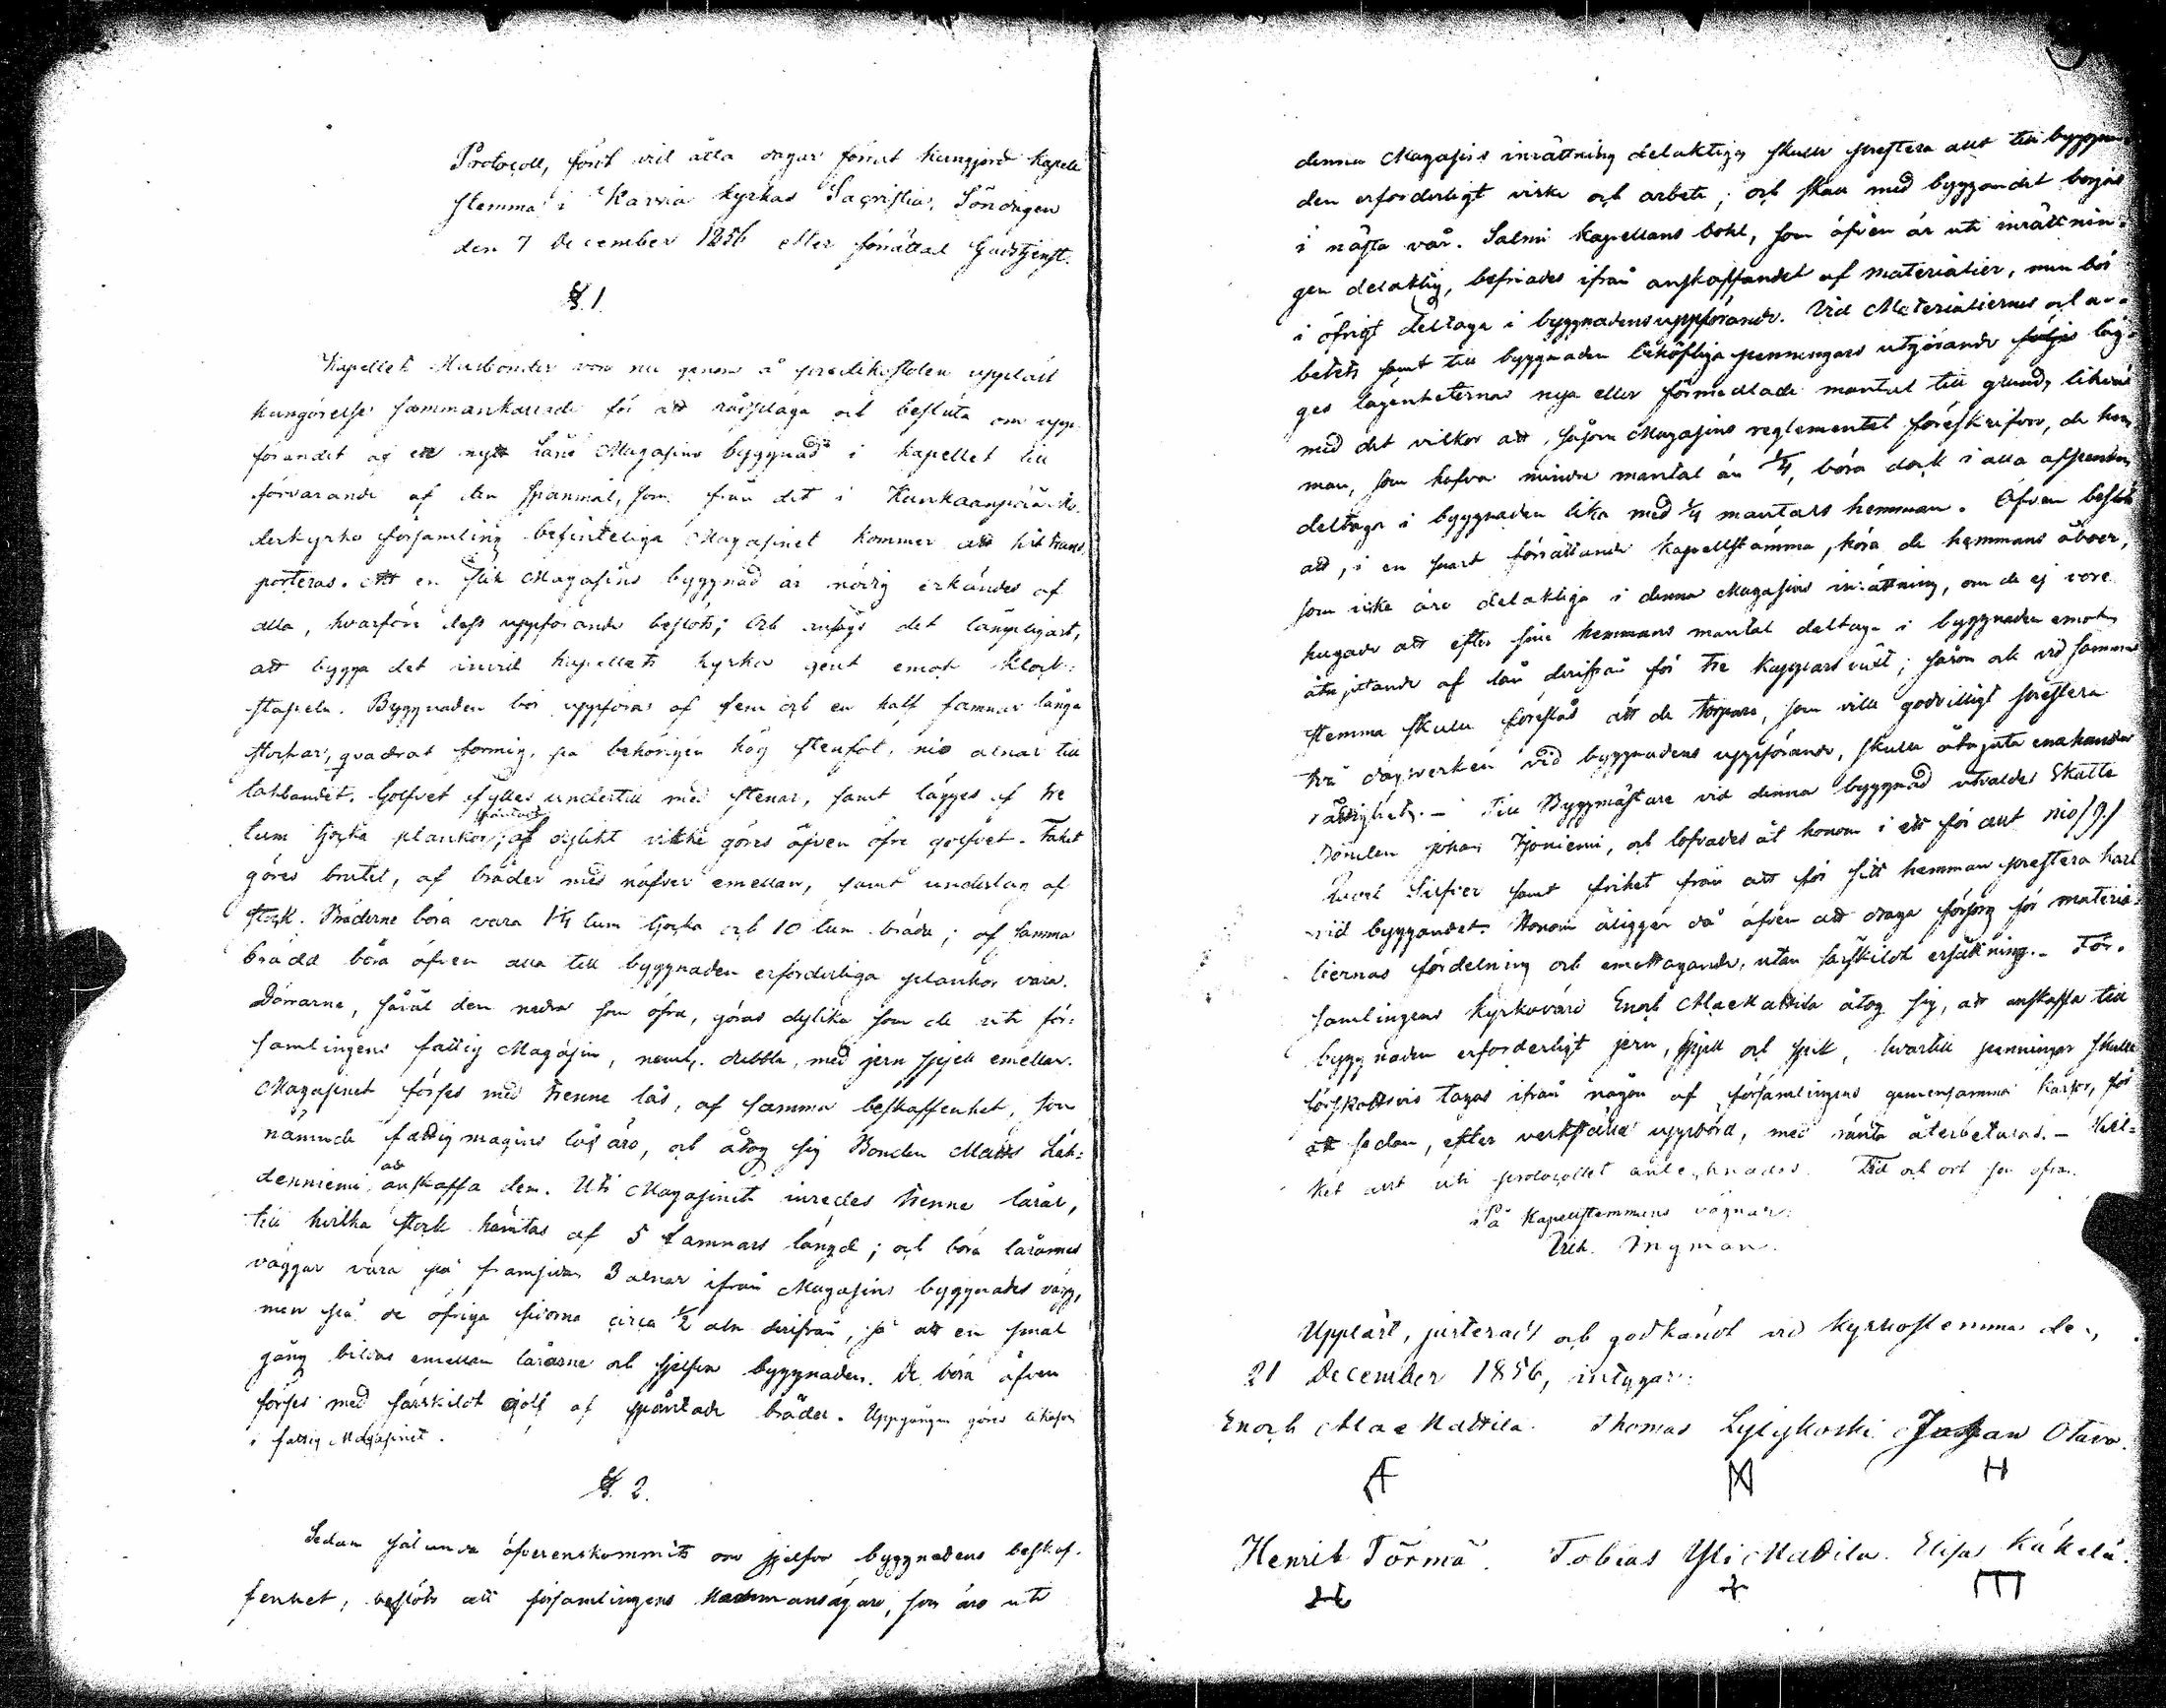 Protocoll, fördt vid åtta dagar förut kungjord kapell
stemma i Karvia kyrkas Sacristia, Söndagen
den 7 December 1856 efter förrättad Gudstjenst.
§. 1.
Kapellets Husbönder voro nu genom å predikstolen uppläst
kungörelse sammankallade för att rådplåga och besluta om upp-
förandet af ett nytt Låne Magasins byggnad i kapellet till
förvarande af den spanmål, som från det i Kankaanpää Mo-
derkyrko församling befinteliga Magasinet kommer att hit trans
porteras. Att en slik Magasins byggnad är nödig erkändes af
alla, hvarföre dess uppförande beslöts; Och ansågs det lämpligast,
att bygga det invid kapellets kyrka gent emot Klock-
stapeln. Byggnaden bör uppföras af fem och en half famnar långa
stockar, quadrat formig, på behörigen hög stenfot, nio alnar till
takbandet. Golfvet fylles undertill med stenar, samt lägges af tre
tum tjocka plankor, spåntade; af dylikt virke göres äfven öfre golfvet. Taket
göres brutet, af bräder med näfver emellan, samt underlag af
stock. Bräderne böra vara 1 1/4 tum tjocka och 10 tum breda; af samma
brädd böra äfven alla till byggnaden erforderliga plankor vara.
Dörrarne, såväl den nedra som öfra, göras dylika som de uti för-
samlingens fattig Magasin, neml. dubbla, med jern spjell emellan.
Magasinet förses med trenne lås, af samma beskaffenhet, som
nämnde fattig magasins lås äro, och åtog sig Bonden Matts Läh-
denniemi att anskaffa dem. Uti Magasinet inredes trenne lårar,
till hvilka stock hämtas af 5 famnars längd; och böra lårarnes
väggar vara på framsidan 3 alnar ifrån Magasins byggnades vägg,
men på de öfriga sidorna circa 1/2 aln derifrån, så att en smal
gång bildas emellan lårarne och sjelfva byggnaden. De böra äfven
förses med särskildt golf af spåntade bräder. Uppgången göres likasom
i fattig Magasinet.
§. 2.
Sedan sålunda öfverenskommits om sjelfva byggnadens beskaf-
fenhet, beslöts att församlingens Hemmansägare, som äro uti
denna Magasins inrättning delaktiga skulle prestera allt till byggna-
den erforderligt virke och arbete; och skall med byggandet börjas
i nästa vår. Salmi Kapellans bohl, som äfven är uti inrättnin-
gen delaktig, befriades ifrån anskaffandet af materialier, men bör
i öfrigt deltaga i byggnadens uppförande. Vid Materialiernas och ar-
betets samt till byggnaden behöfliga penningars utgörande läg-
ges lägenheternas nya eller förmedlade mantal till grund, likväl
med det vilkor att, såsom Magasins reglementet föreskrifver, de hem
man, som hafva mindre mantal än 1/4, böra dock i alla afseenden
deltaga i byggnaden lika med 1/4 mantals hemman. Äfven beslöts
att, i en snart förrättande Kapellstämma, höra de hemmans åboer,
som icke äro delaktiga i denna Magasins inrättning, om de ej vore
hugade att efter sina hemmans mantal deltaga i byggnaden emot
åtnjutande af lån derifrån för tre kappars växt; såsom och vid samma
stemma skulle föreslås att de torpare, som ville godvilligt prestera
två dagsverken vid byggnadens uppförande, skulle åtnjuta enahanda
rättighet. – Till Byggmästare vid denna byggnad utvaldes Skatte
Bonden Johan Tjoniemi, och lofvades åt honom i ett för allt nio /9./
Rubel Silfver samt frihet från att för sitt hemman prestera karl
vid byggandet. Honom åligger då äfven att draga försorg för materia-
liernas fördelning och emottagande, utan särskildt ersättning. – För-
samlingens Kyrkovärd Enoch MacMattila åtog sig, att anskaffa till
byggnaden erforderligt jern, spjell och spik, hvartill penningar skulle
förskottsvis tagas ifrån någon af församlingens gemensamma kassor, för
att sedan, efter verkställd uppbörd, med ränta återbetalas. – Hvil-
ket allt uti protocollet antecknades. Tid och ort som ofvan.
På Kapellstemmans vägnar:
Vilh. Ingman.
Uppläst, justeradt och godkändt vid Kyrkostemma den
21 December 1856, intygar:
Enoch MacMattila. Thomas Lylykoski Johan Otava.
Henrik Törmä. Tobias YliMattila. Elisas Käkelä.